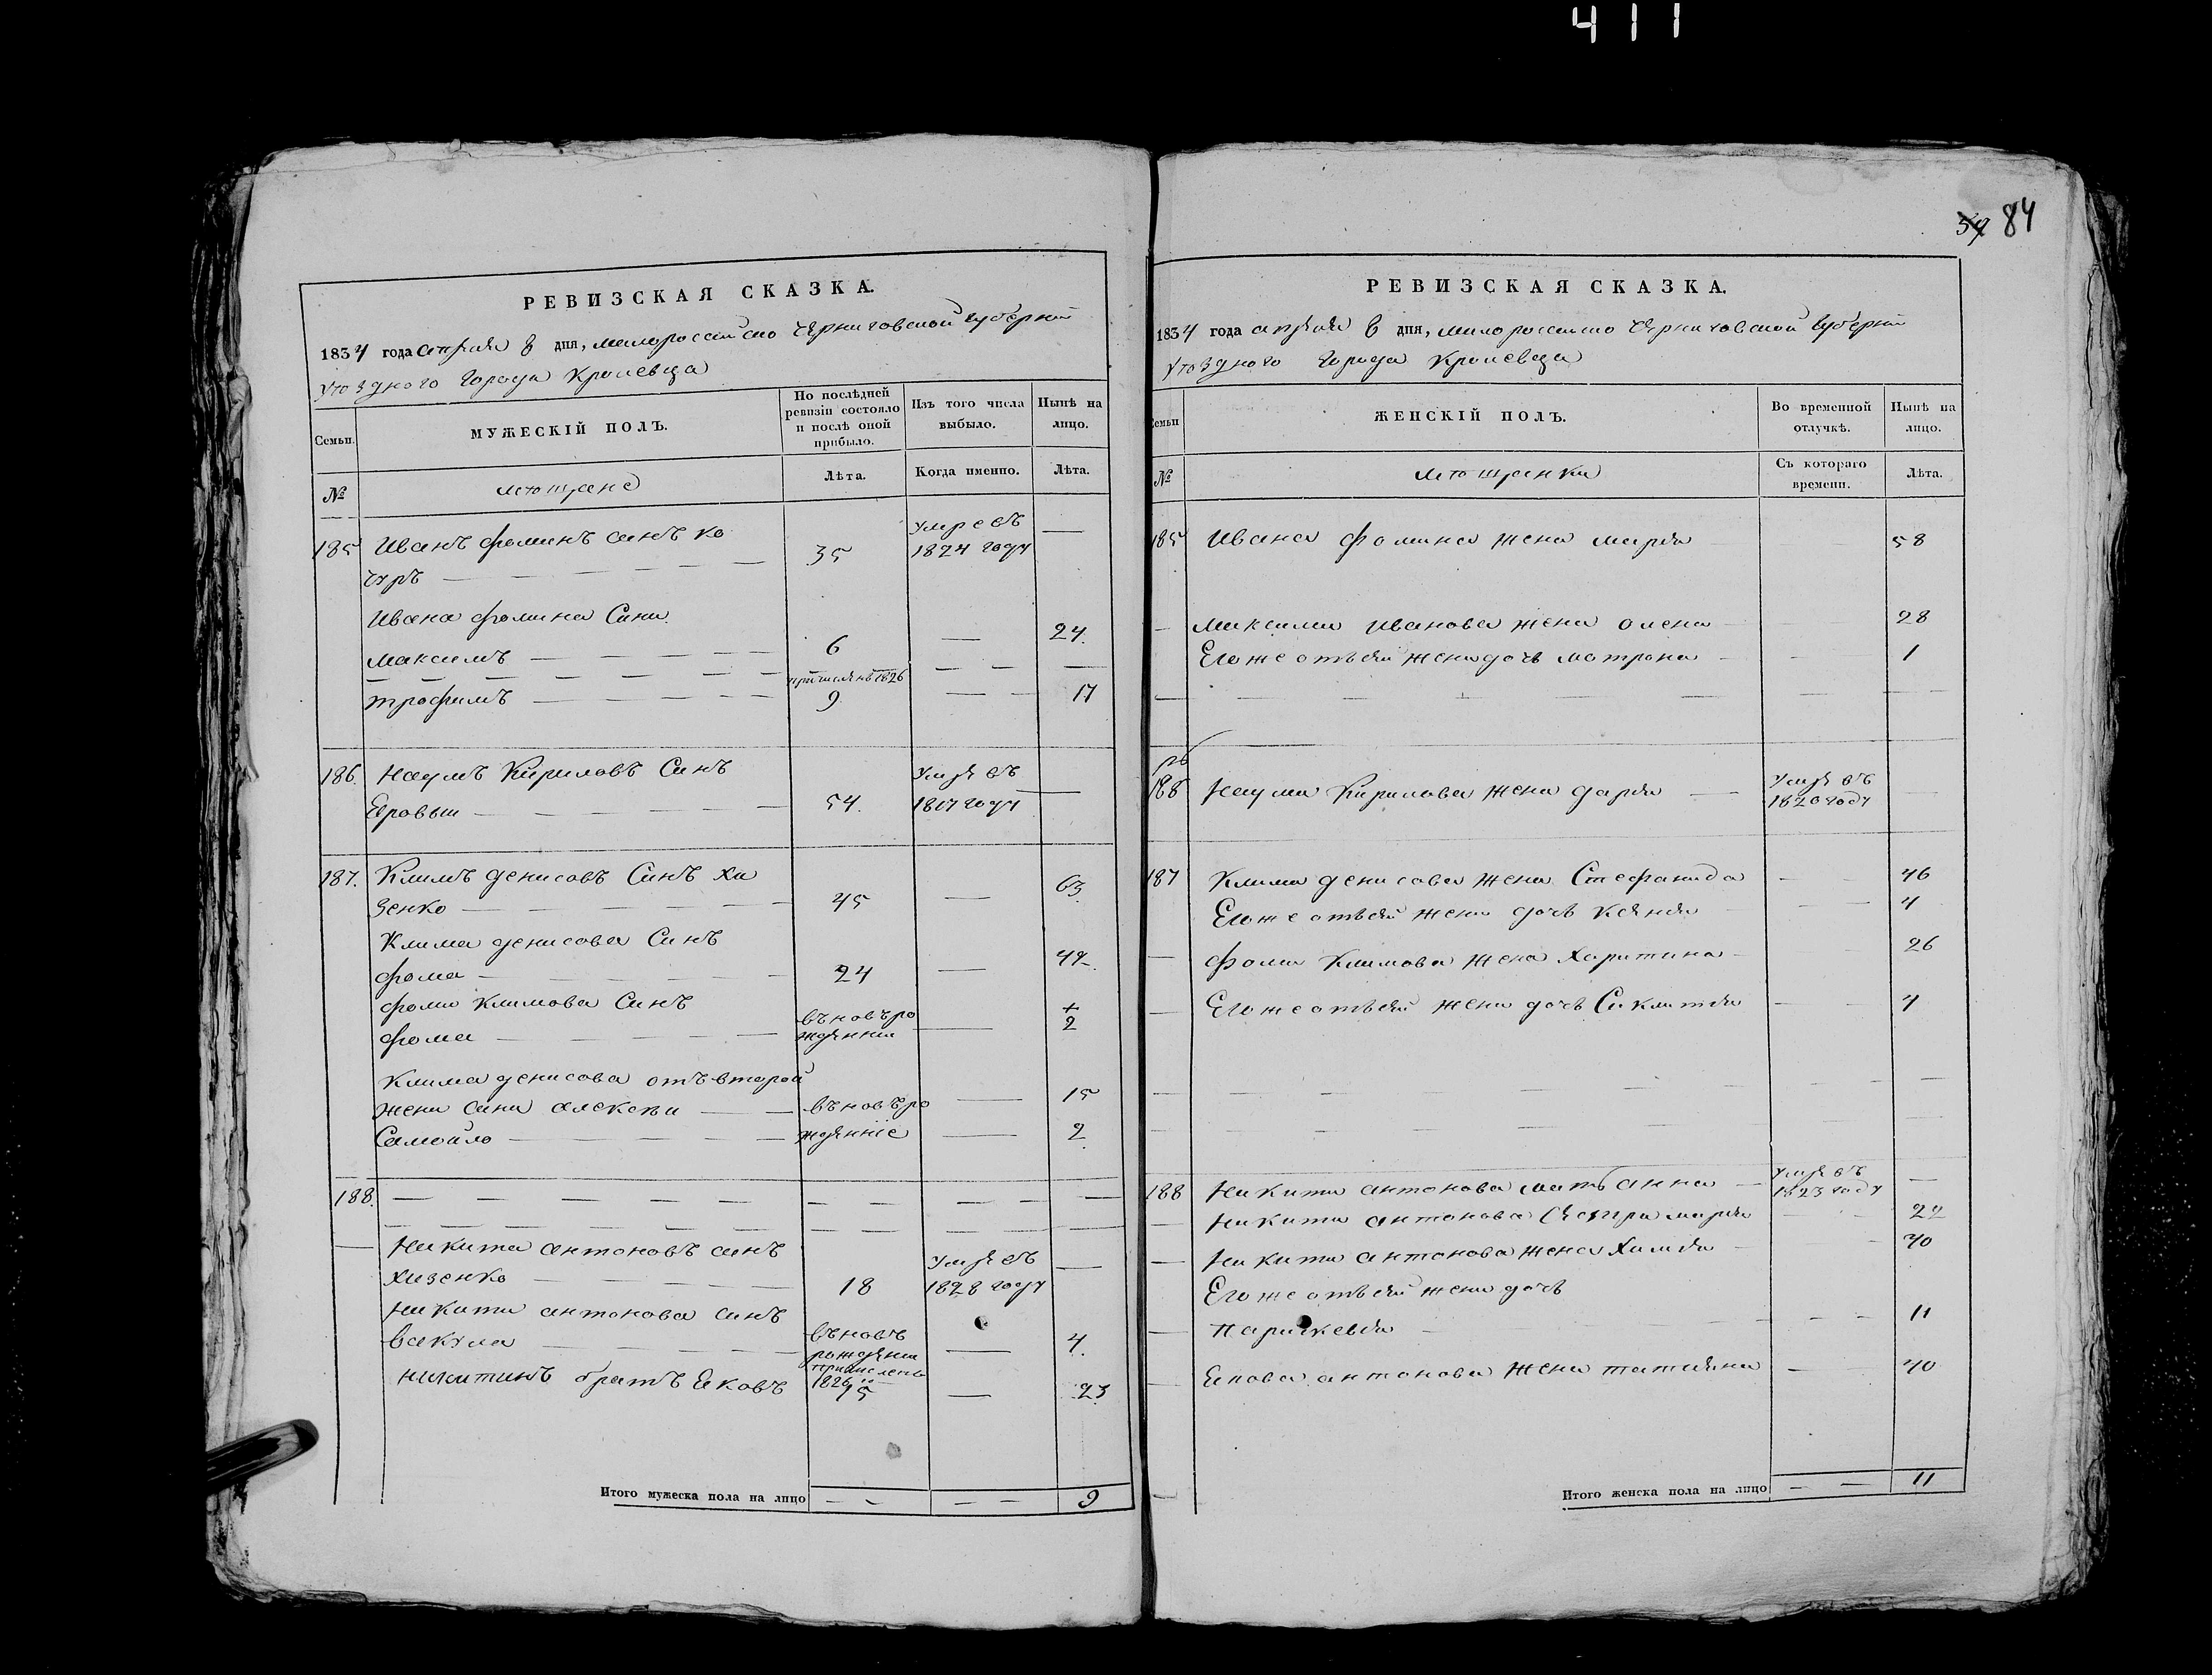 411
84
РЕВИЗСКАЯ СКАЗКА.
1834 года апреля дня, малороссийско Черниговской губернии
уездного города Кролевца
Семьи.
МУЖЕСКІЙ ПОЛЪ.
По послѣдней ревизіи состояло и послѣ оной прибыло.
Изъ того числа выбыло.
Нынѣ на лицо.
№
Лѣта.
Когда именно.
Лѣта.
185 Иванъ фоминъ синъ ко 35 умре въ 1824 году —
чуръ
Ивана фомина Сини
максимъ 6 — 24.
причисленъ 1826
трофимъ 9 — 17
186. Наумъ Кириловъ Синъ
Яровыи 54. — умре въ 1817 году —
187. Климъ денисовъ Синъ Хи
зенко 45 — 63.
Клима денисова Синъ
фома 24 — 42.
фоми климова Синъ
фома — вновъ рожденни — 2
Клима денисова отъ второй
жени сини алексѣи — вновъ ро — 15
Самойло — жденніе — 2
188.
Никита антоновъ синъ
хизенко 18 умре въ 1828 году —
Никити антонова синъ
вакула — вновъ рожденни — 4.
никитинъ братъ Яковъ причисленъ 1826 15 — 23
Итого мужеска пола на лицо — — 9
РЕВИЗСКАЯ СКАЗКА.
1834 года апреля дня, малороссийско Черниговской губернии
уездного города Кролевца
Семьи
ЖЕНСКІЙ ПОЛЪ.
Во временной отлучкѣ.
Нынѣ на лицо.
№
Съ котораго времени.
Лѣта.
185 Ивана фомина жена мария 58
максима иванова жена олена 28
Его же отъ сей жени дочь мотрона 1
186 Наума Кирилова жена дария умре въ 1820 году —
187 Клима денисова жена Стефанида 46
Его же отъ сей жени дочь ксения 4
фоми климова жена Харитина 26
Его же отъ сей жени дочь Сиклития 4
188 Никити антонова мать анна умре въ 1823 году —
Никити антонова сестра мария 22
Никити антонова жена 40
Его же отъ сей жени дочь
параскевия 11
Якова антонова жена татияна 40
Итого женска пола на лицо — — 11